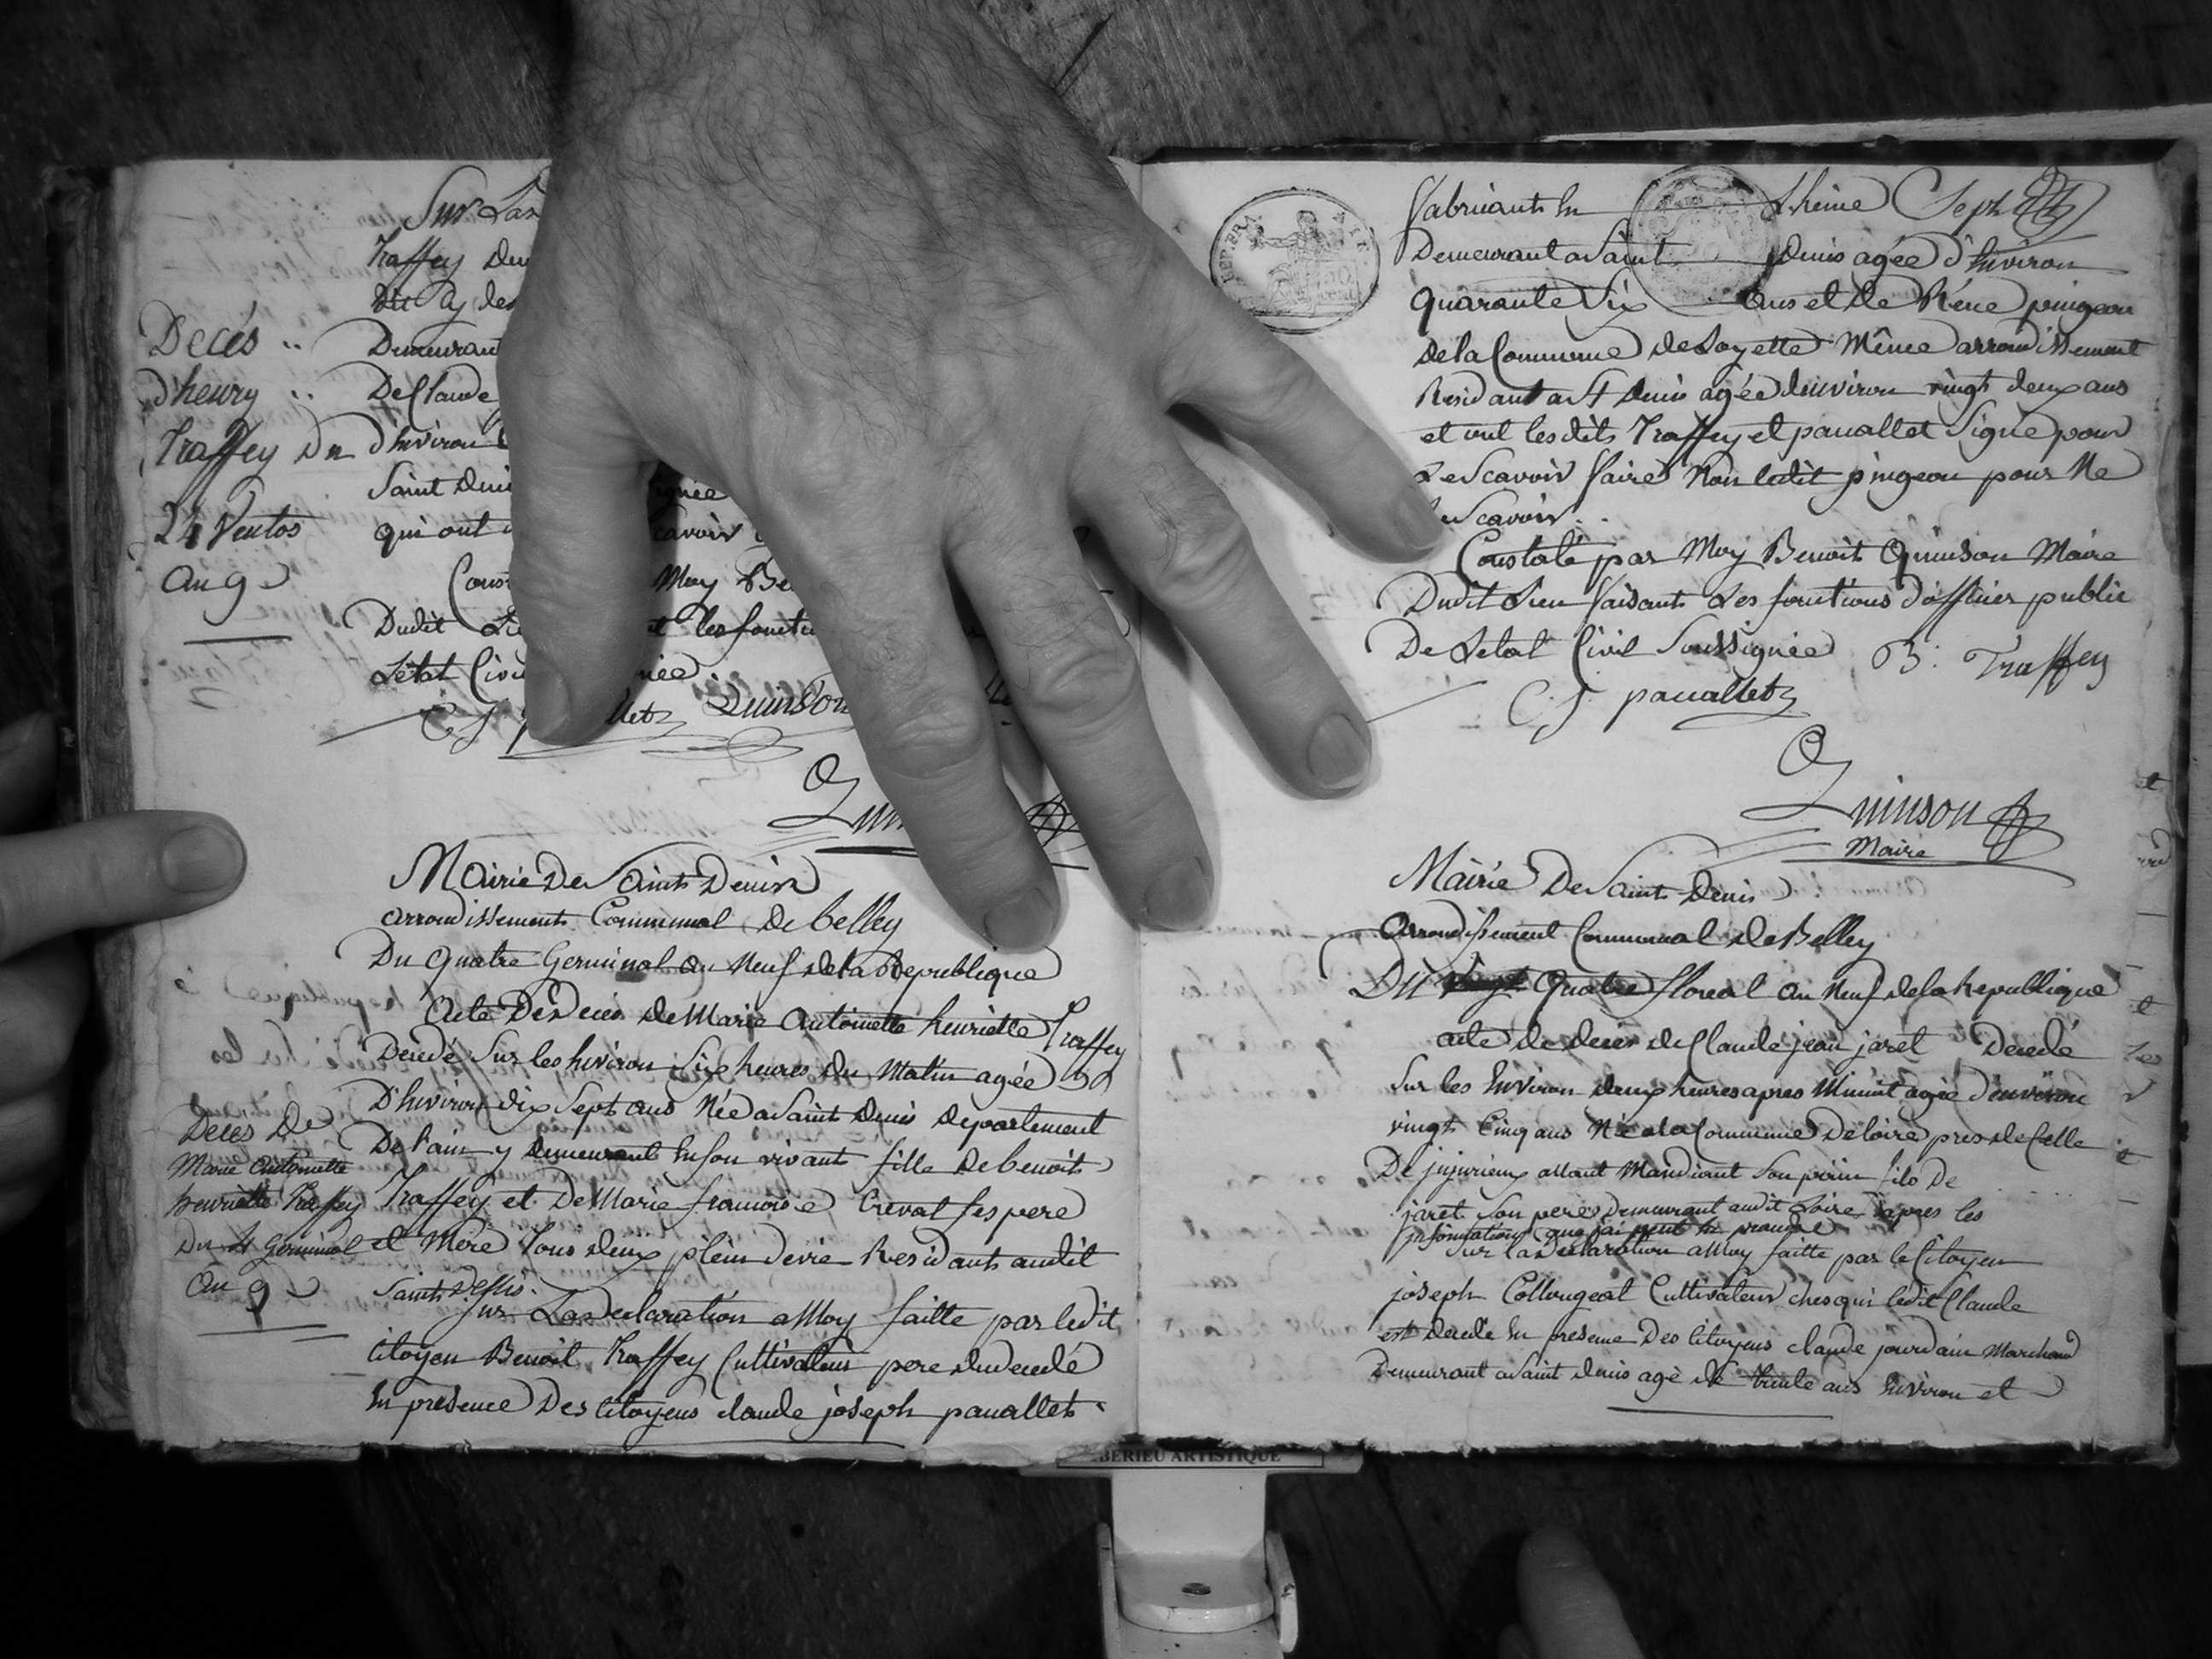 Sur Las
Traffey Dem
Dit Ay des
Decés .. Demeurant
d'heury .. De Claude
Traffey Du d'huviron
Saint Deni ignée
24 Ventos qui ont scavoir
An 9e Const Moy Be
Dudit Li t les fonctio
Létat Civil née.
C J llet Quinson
Mairie De Saint Denis
arrondissement Communal De belley
Du Quatre Germinal an Neuf dela Republique
Acte De Deces de Marie Antoinette henriette Traffey
Decedé Sur les huviron Six heures du Matin agée
D'huviron dix Sept ans Née a Saint Denis departement
De lain y demeurant En son vivant fille de benoit
Traffey et De Marie francoise Crevat ses pere
et Mere tous deux plein de vie Residants audit
Saint Denis.
Deces De
Marie Antoinette
henriette Traffey
Du 4 Germinal
An 9e
Sur La declaration a Moy faitte par ledit
Citoyen Benoit Traffey Cultivateur pere du decedé
En presence Des Citoyens claude joseph pauallet
REP. FRA
fabriants En Lheine Seph
Demeurant a Saint Denis agée d'huviron
quarante Six ans et de Réne pingeon
de la Commune de Loyette Même arrondissement
Residant a St Denis agée denviron vingt deux ans
et ont lesdits Traffey et pauallet Signé pour
Le Scavoir faire Non ledit pingeon pour Ne
Le Scavoir.
Constaté par Moy Benoit Quinson Maire
Dudit Lieu faisant Les fonctions d'officier public
De Letat Civil Soussignée B. Traffey
C. J. pauallet
Quinson
Maire
Mairie De Saint Denis
Arrondissement Communal de Belley
Du vingt Quatre floreal an Neuf de la Republique
acte de deces de Claude jean jaret Decedé
Sur les Environ deux heures apres Minuit agée d'environ
vingt Cinq ans Né a la Commune De loire pres de Celle
De jujurieux allant Mandiant Son pain fils De
jaret Son pere Demeurant audit Loire d'apres les
informations que j'ai peut En prendre
Sur La Declaration a Moy faitte par le Citoyen
joseph Collougeat Cultivateur chesqui ledit Claude
est decede En presence Des Citoyens claude jourdain Marchand
Demeurant a Saint Denis agé de trente ans Environ et
BERIEU ARTISTIQUE